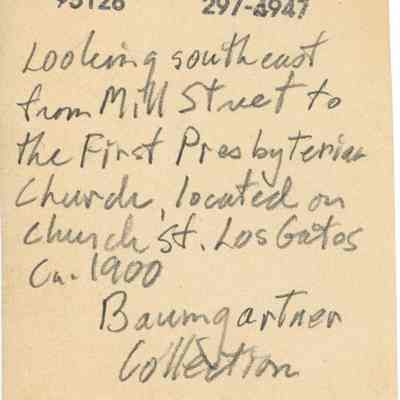 95126 297-8947
Looking southeast
from Mill Street to
the First Presbyterian
Church, located on
church st. Los Gatos
Ca. 1900
Baumgartner
Collection